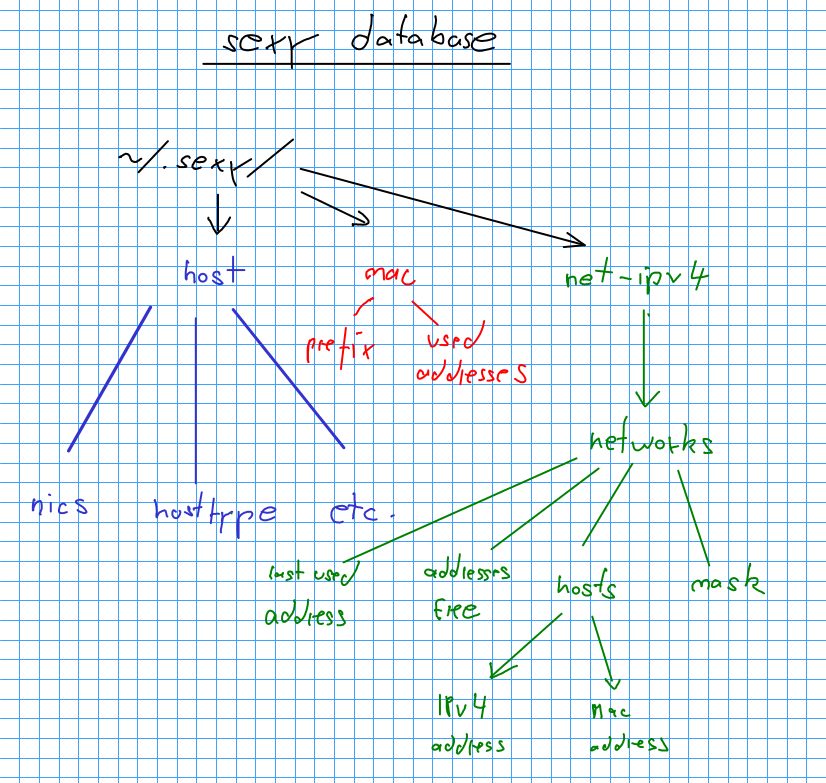 sexy database
~/.sexy/
host
mac
net-ipv4
prefix
used
addresses
networks
nics
hosttype
etc.
last used
address
addresses
free
hosts
mask
IPv4
address
Mac
address